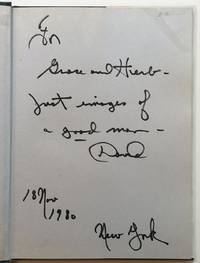 For
Grace and Herb-
just images of
a good man-
David
18 Nov
1980
New York